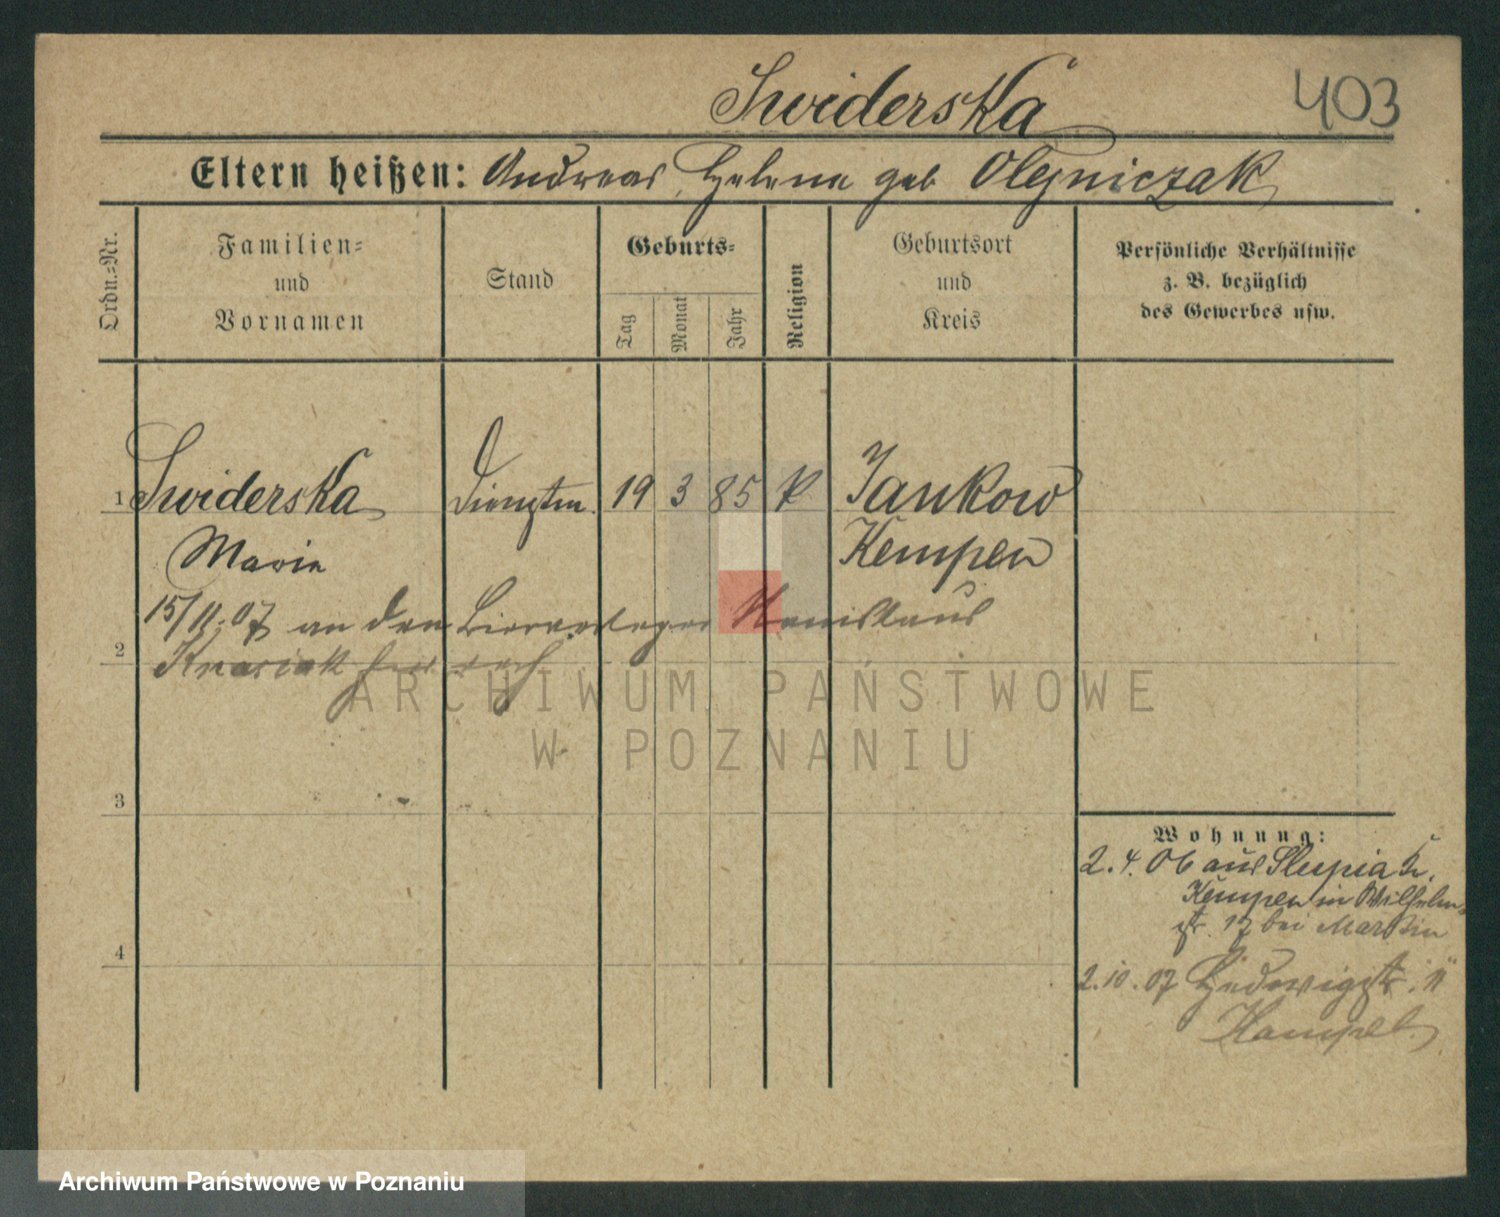 Swiderska 403
Eltern heißen: Andreas, Helena geb Olejniczak
Ordn.=Nr.
Familien=
und
Vornamen
Stand
Geburts=
Tag
Monat
Jahr
Religion
Geburtsort
und
Kreis
Persönliche Verhältnisse
z. B. bezüglich
des Gewerbes usw.
1 Swiderska Dienstm. 19 3 85 k Jankow
Marie Kempen
15/11.07 an den Bierverleger Stanislaus
2
3
Wohnung:
2.4.06 aus Slupia Kr.
Kempen in Wilhelm-
str. 17 bei
4
2.10.07 Hedwigstr. 11
ARCHIWUM PAŃSTWOWE
W POZNANIU
Archiwum Państwowe w Poznaniu